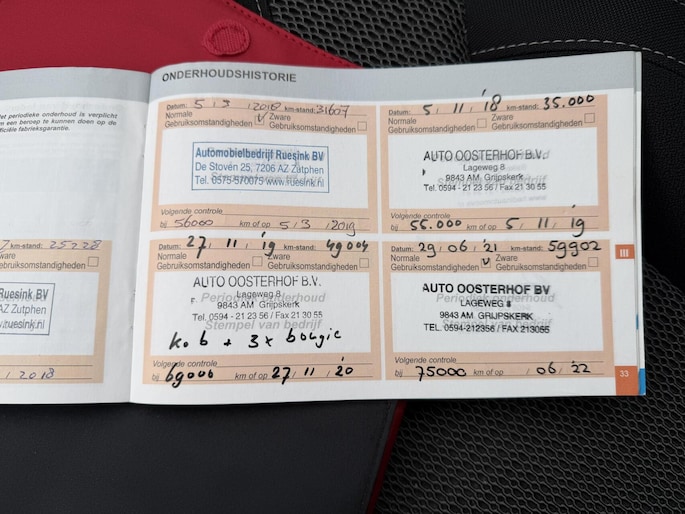 ONDERHOUDSHISTORIE
et periodieke onderhoud is verplicht
m een beroep te kunnen doen op de
ficiële fabrieksgarantie.
km-stand: 25228
ware
Gebruiksomstandigheden
Ruesink BV
AZ Zutphen
w.ruesink.nl
2018
Datum: 5/3/2018 km-stand: 31607
Normale Zware
Gebruiksomstandigheden Gebruiksomstandigheden
Automobielbedrijf Ruesink BV
De Stoven 25, 7206 AZ Zutphen
Tel. 0575-570075 www.ruesink.nl
Volgende controle
bij 56000 km of op 5/3/2019
Datum: 5/11/'18 km-stand: 35.000
Normale Zware
Gebruiksomstandigheden Gebruiksomstandigheden
AUTO OOSTERHOF B.V.
Lageweg 8
9843 AM Grijpskerk
Tel. 0594 - 21 23 56 / Fax 21 30 55
Volgende controle
bij 55.000 km of op 5/11/'19
Datum: 27/11/'19 km-stand: 49004
Normale Zware
Gebruiksomstandigheden Gebruiksomstandigheden
AUTO OOSTERHOF B.V.
Lageweg 8
9843 AM Grijpskerk
Tel. 0594 - 21 23 56 / Fax 21 30 55
Periodiek onderhoud
Stempel van bedrijf
k.o.b + 3x bougie
Volgende controle
bij 69000 km of op 27/11/'20
Datum: 29/06/'21 km-stand: 59902
Normale Zware
Gebruiksomstandigheden Gebruiksomstandigheden
AUTO OOSTERHOF BV
LAGEWEG 8
9843 AM GRIJPSKERK
TEL. 0594-212356 / FAX 213055
Volgende controle
bij 75000 km of op /06/'22
III
33